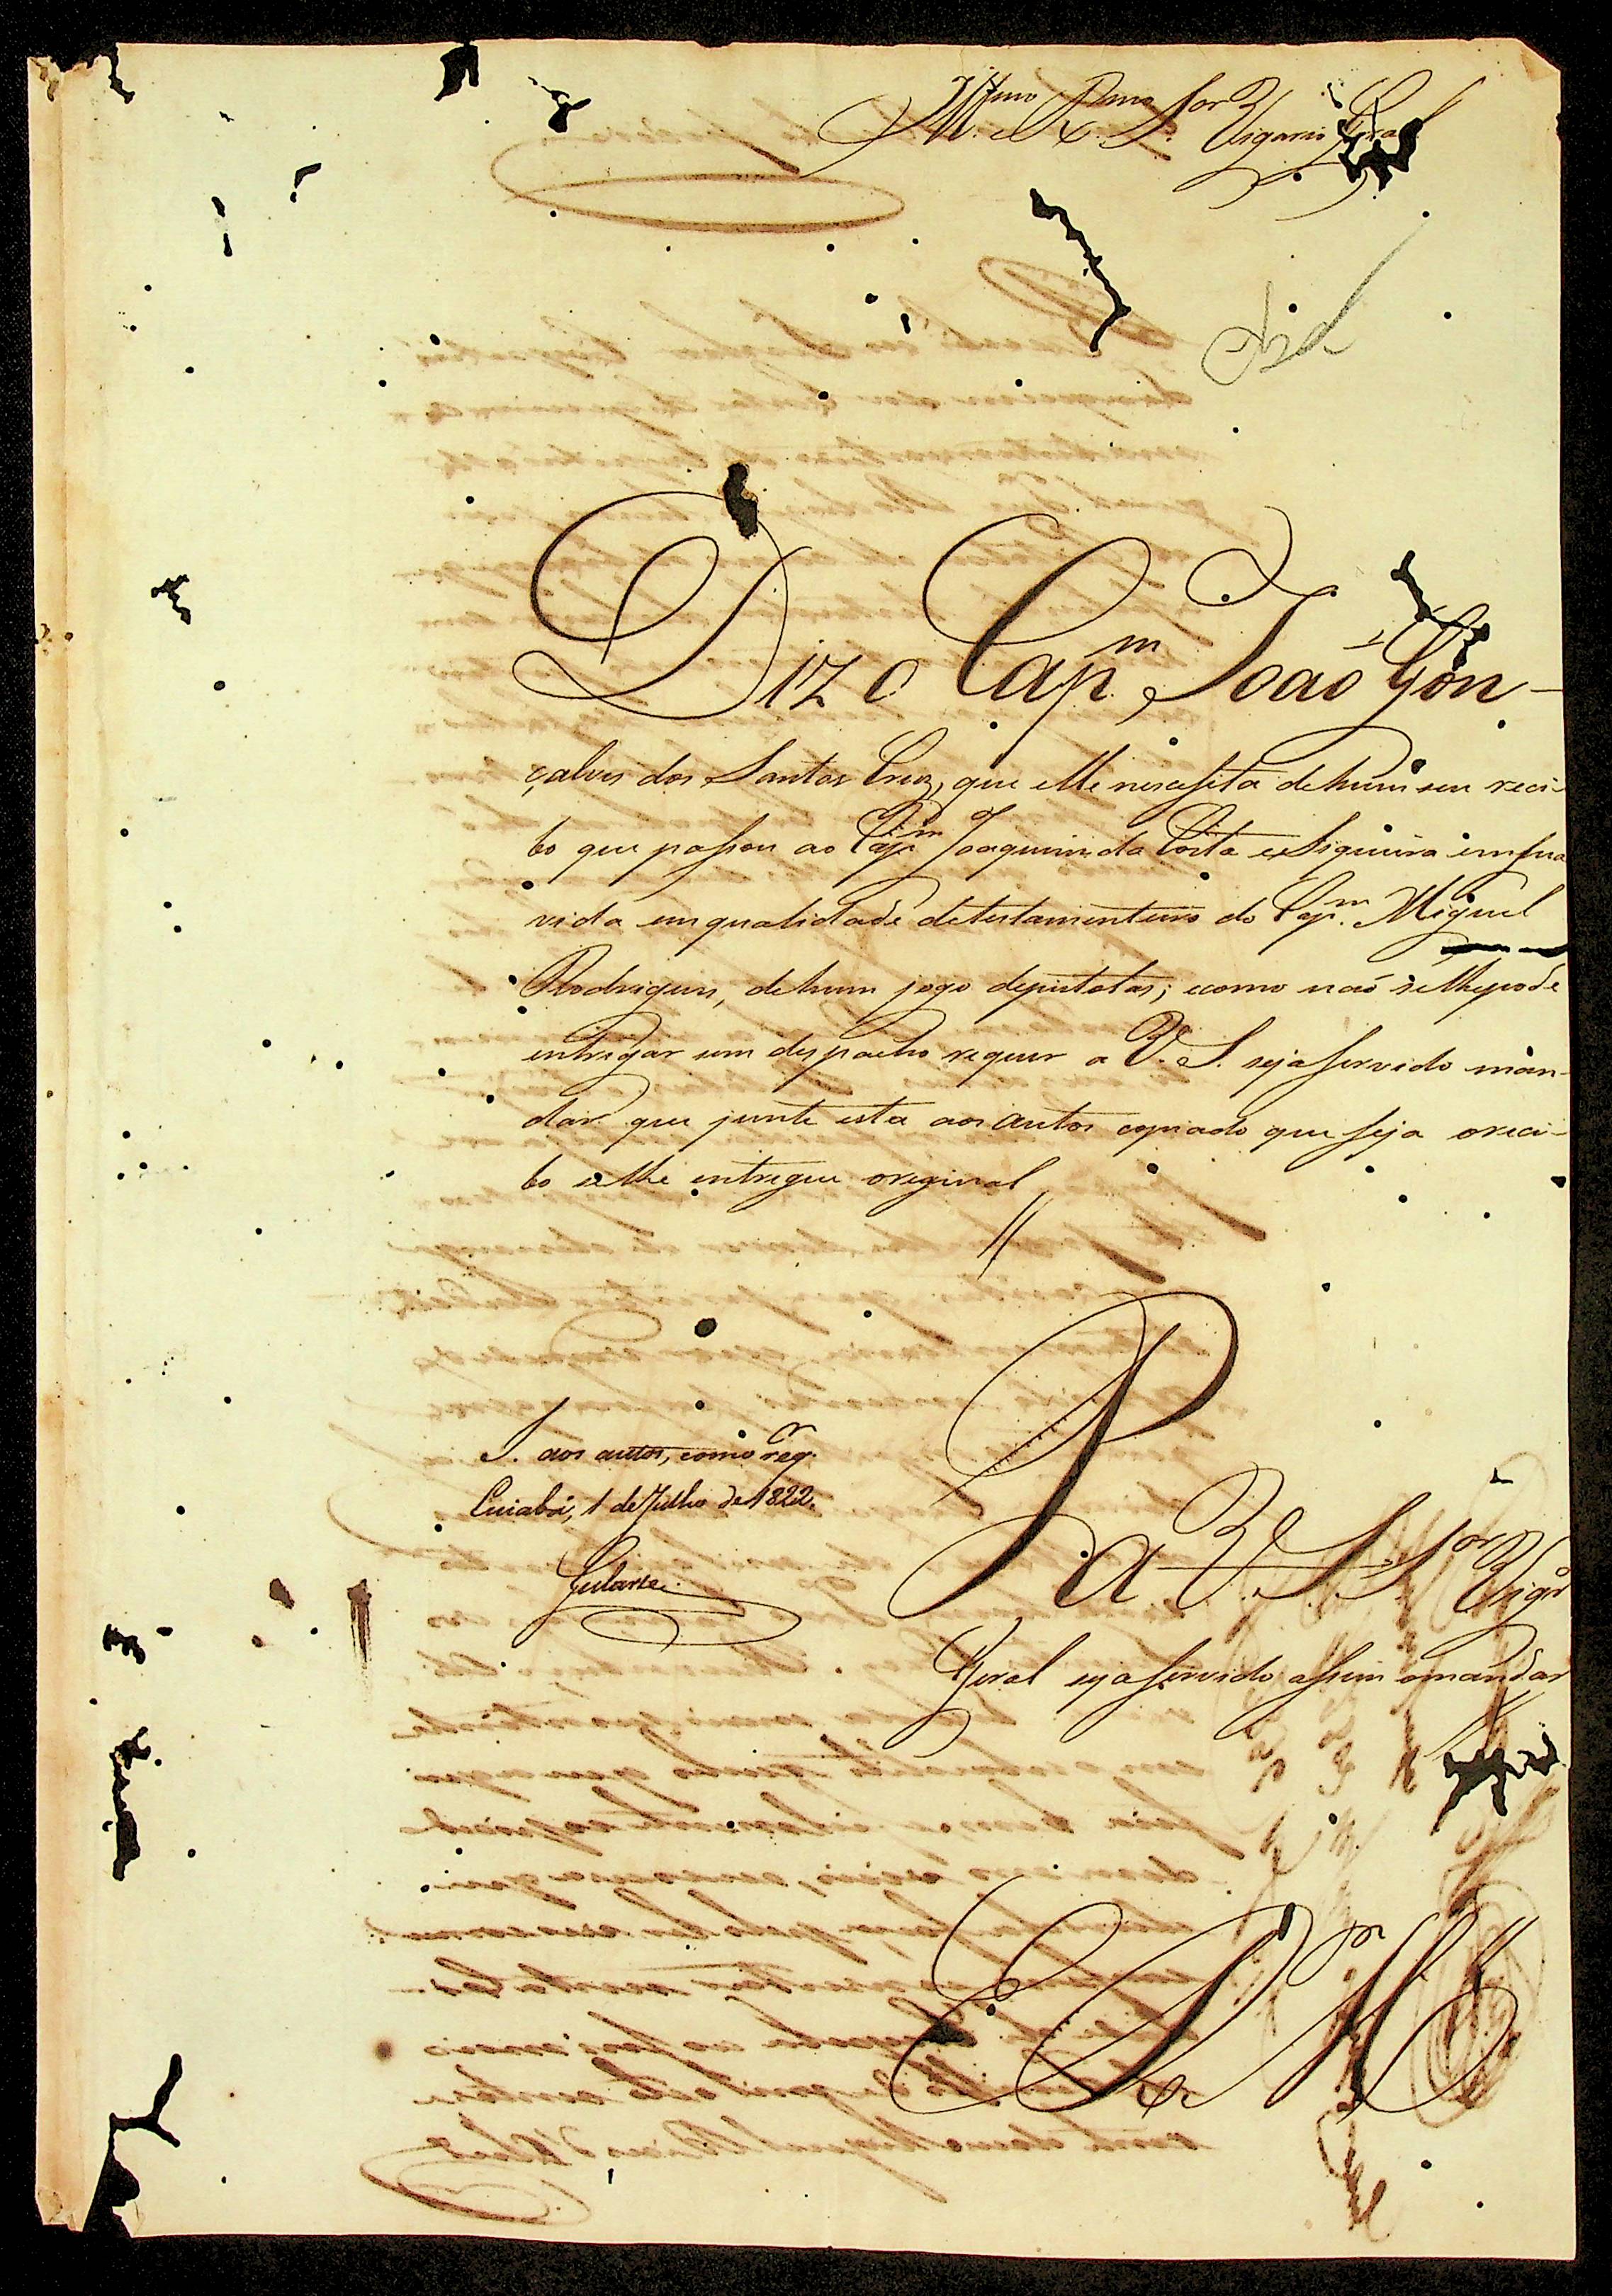 Illmo e Rmo Sor Vigario Geral
Diz o Capm. João Gon-
çalves dos Santos Cruz, que elle necessita de hum seu reci-
bo que passou ao Capm Joaquim da Costa e Siqueira em sua
vida em qualidade de testamenteiro do Capm. Miguel
Rodrigues, de hum jogo de pistolas; e como não se lhe pode
entregar sem despacho requer a V. S. seja servido man-
dar que junte esta aos autos copiado que seja o reci-
bo se lhe entregue original
P. a V. S. Sor Vigro
Geral seja servido assim o mandar
J. aos autos, como reqr.
Cuiabá, 1 de Julho de 1822.
Gularte.
E R Mce